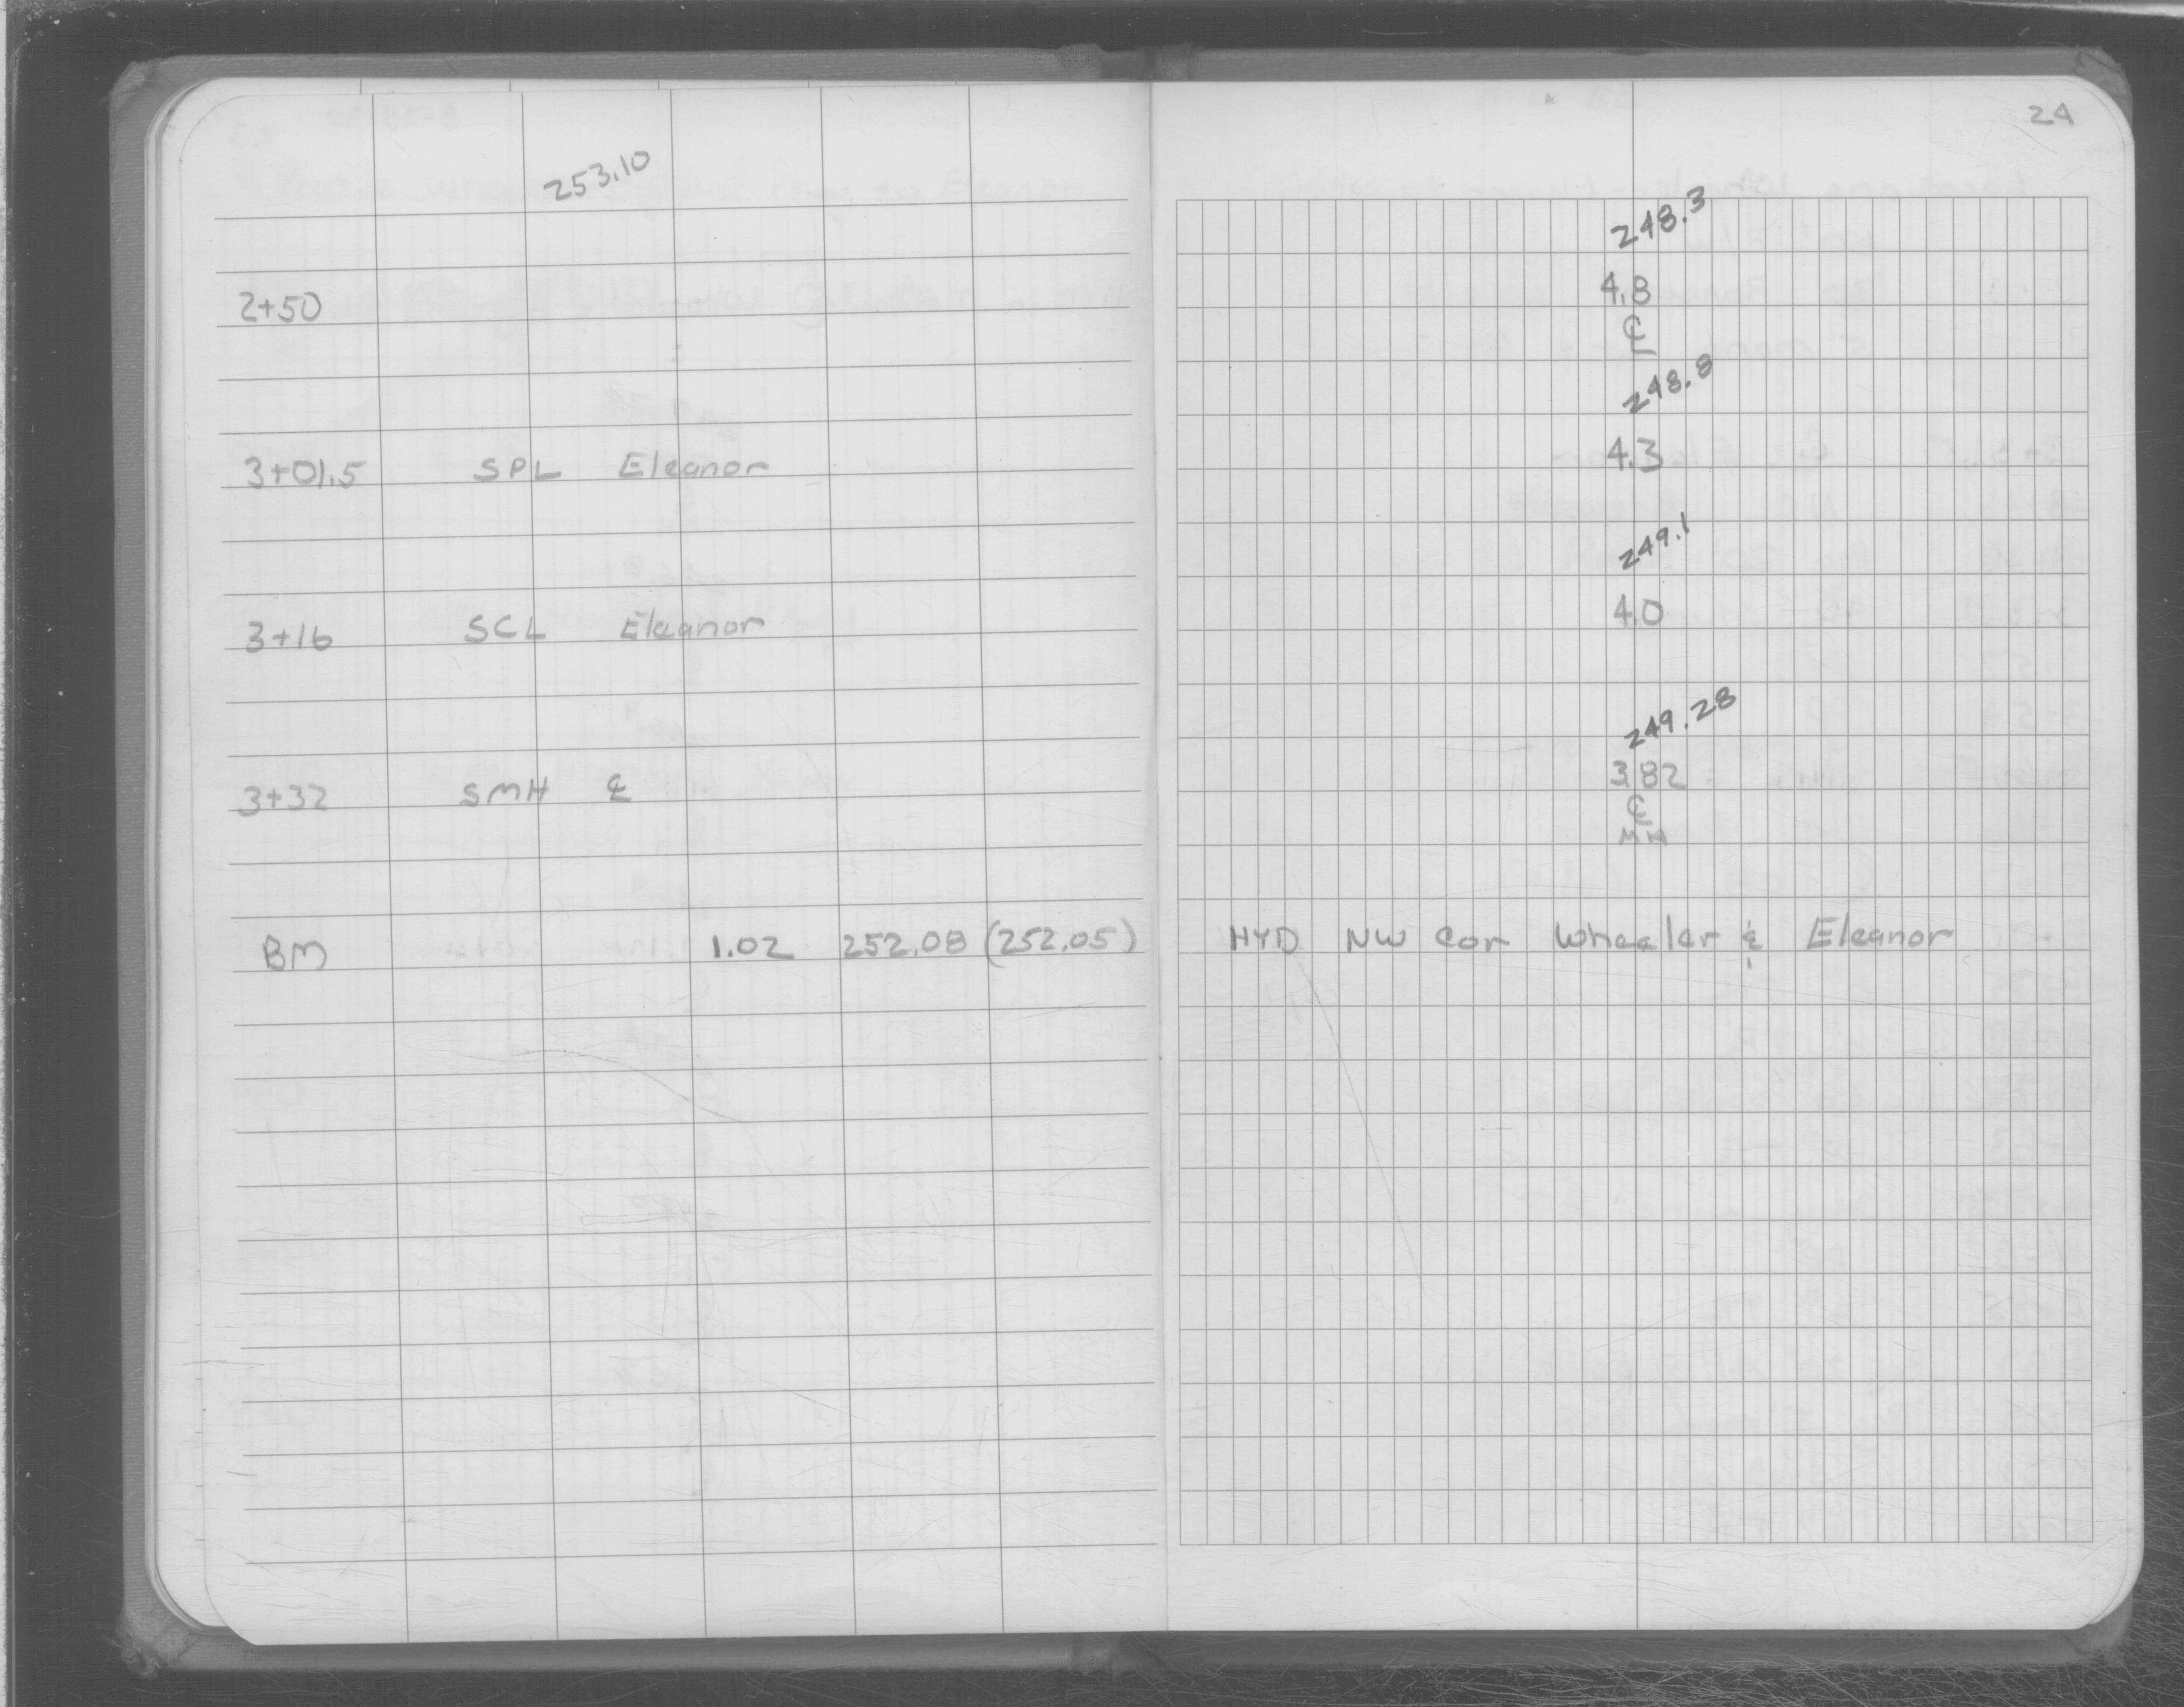 24
253.10
248.3
2+50 4.8
℄
248.8
3+01.5 SPL Eleanor 4.3
249.1
3+16 SCL Eleanor 4.0
249.28
3+32 SMH ℄ 3.82
℄
MH
BM 1.02 252.08 (252.05) HYD NW Cor Wheeler & Eleanor